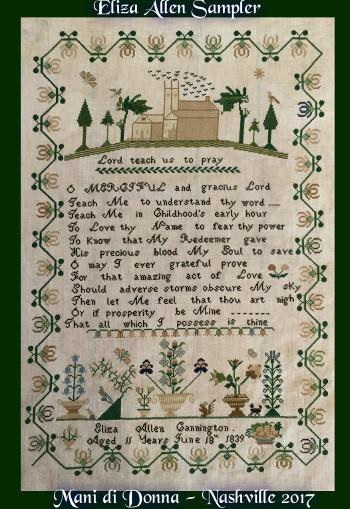 Eliza Allen Sampler
Lord teach us to pray
O MERCIFUL and gracius Lord
Teach Me to understand thy word
Teach Me in Childhood's early hour
To Love thy Name to fear thy power
To Know that My Redeemer gave
His precious blood My Soul to save
O may I ever grateful prove
For that amazing act of Love
Should adverse storms obscure My sky
Then let Me feel that thou art nigh
Or if prosperity be Mine
That all which I possess is thine
Eliza Allen Cannington.
Aged 11 Years June 18th 1839
Mani di Donna ~ Nashville 2017